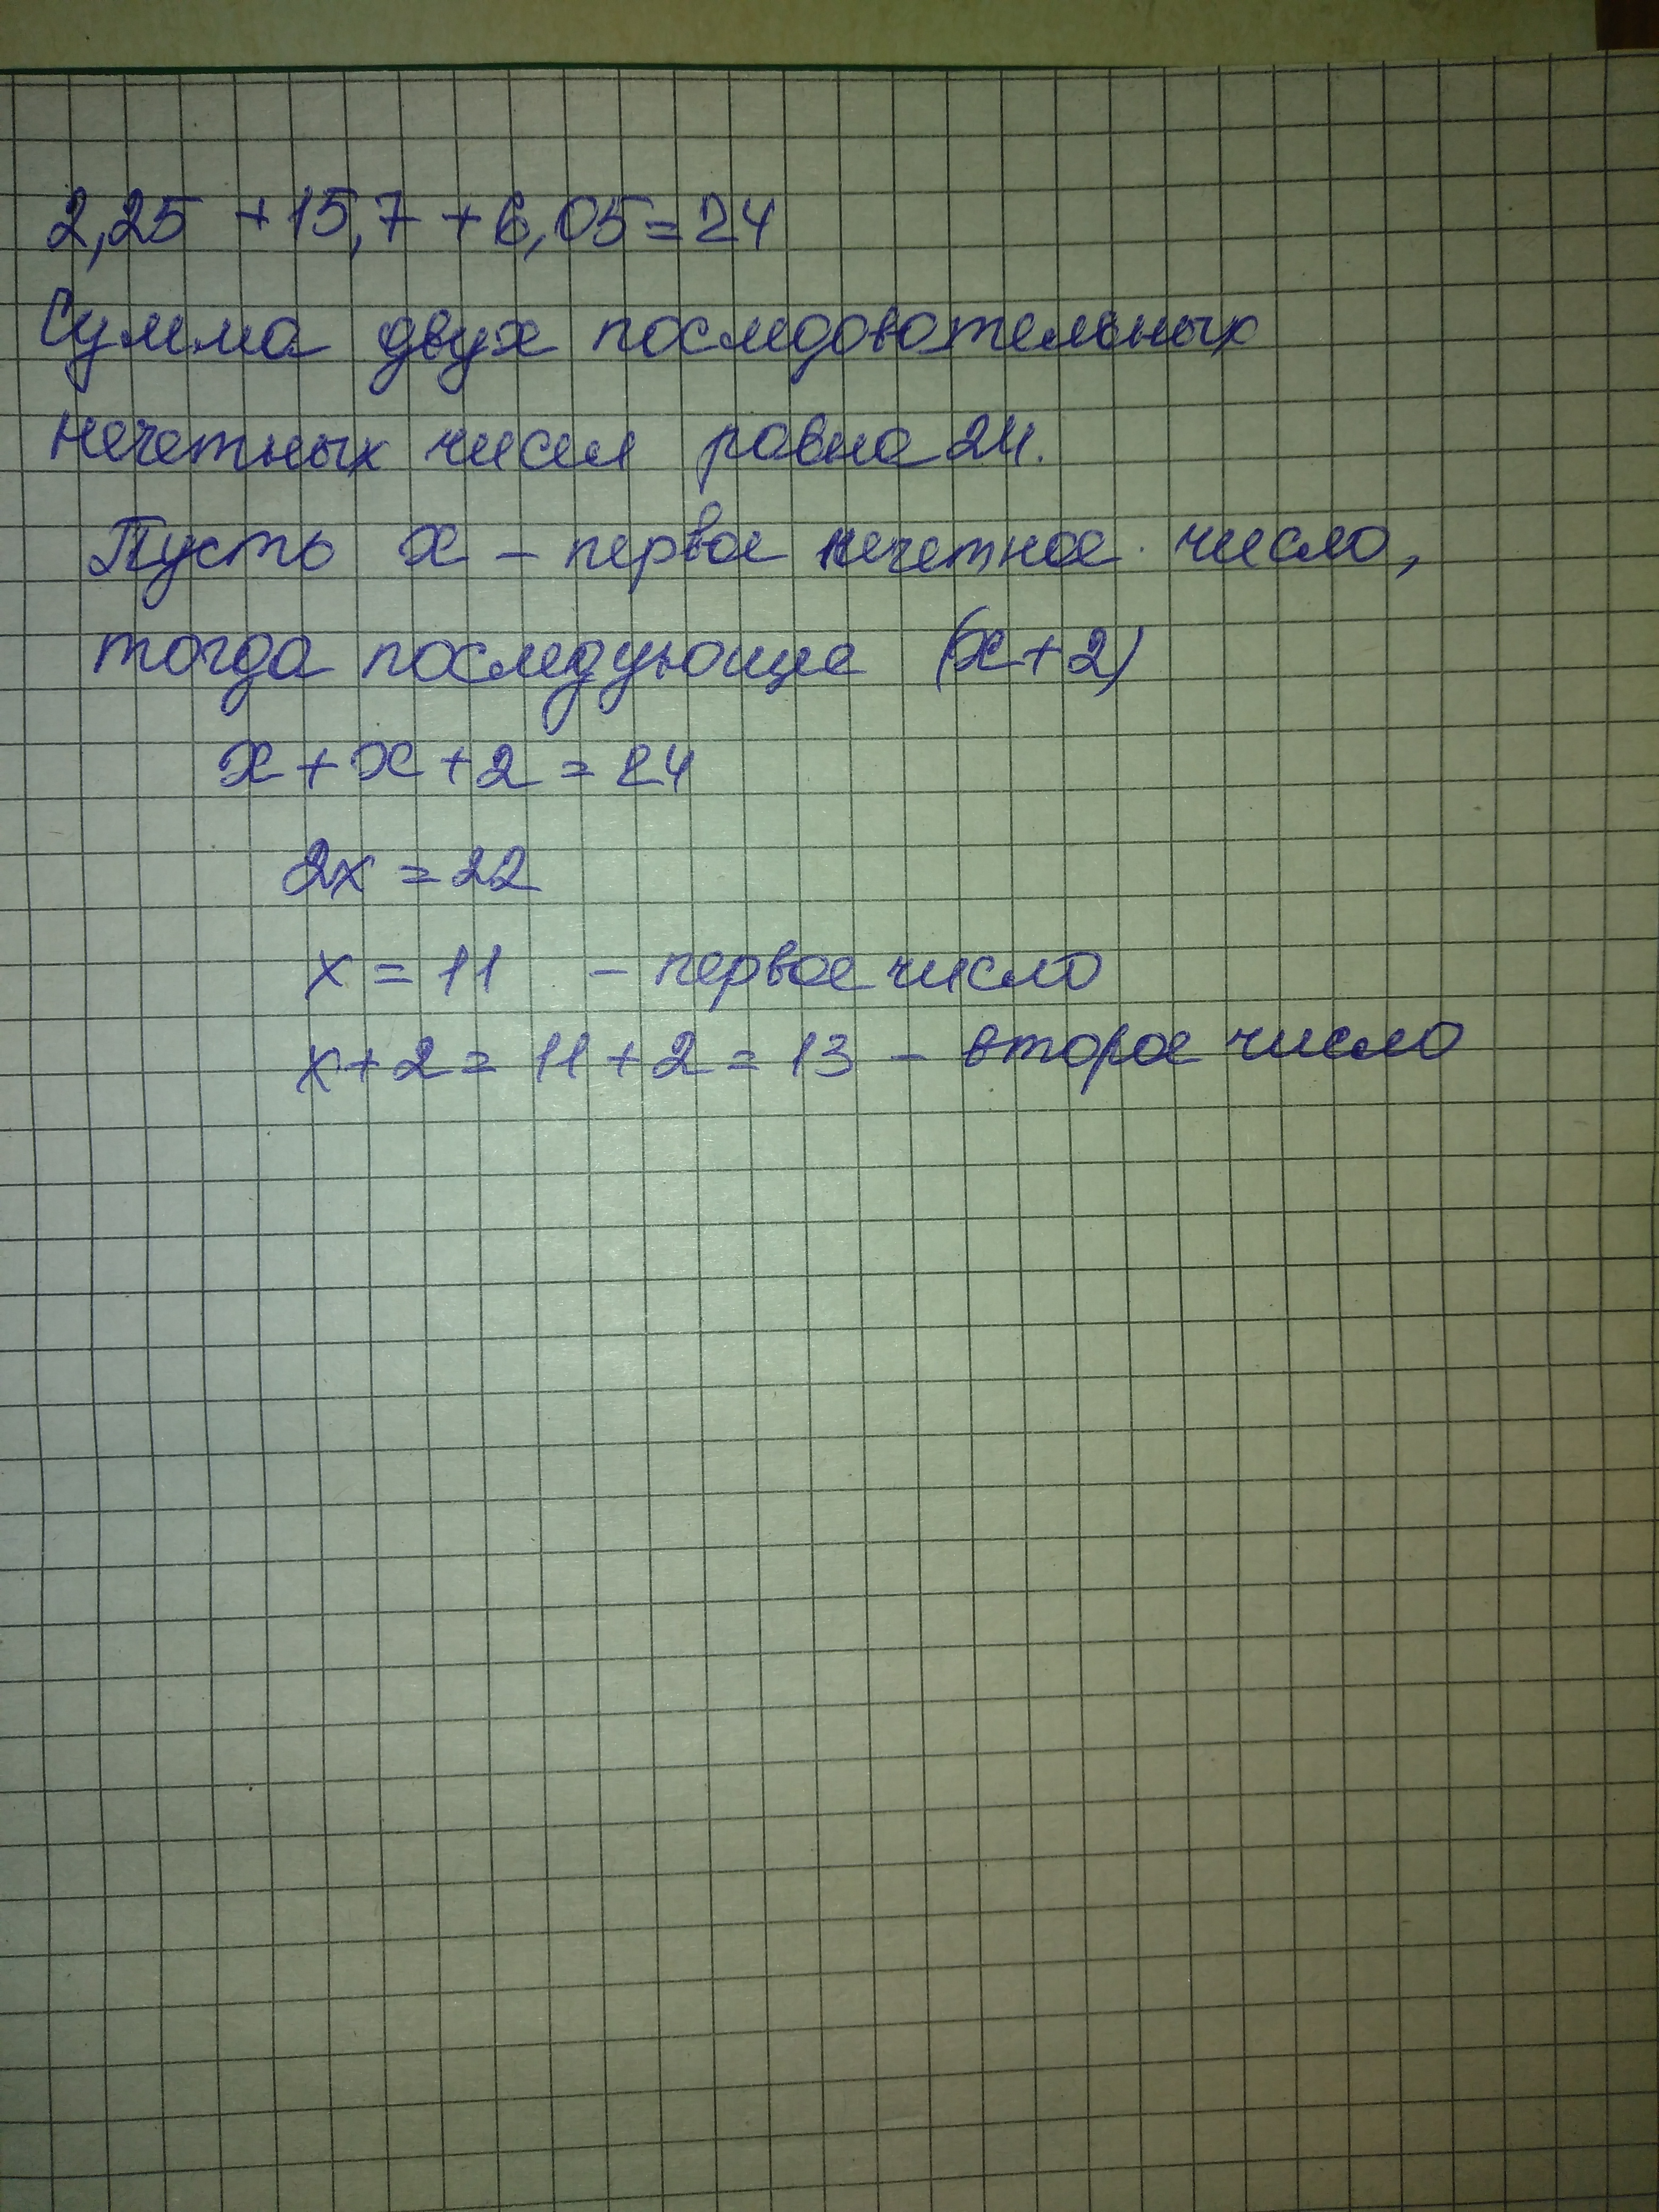 2,25 + 15,7 + 6,05 = 24
Сумма двух последовательных
нечетных чисел равна 24.
Пусть x – первое нечетное число,
тогда последующие (x+2)
x + x + 2 = 24
2x = 22
x = 11 – первое число
x + 2 = 11 + 2 = 13 – второе число